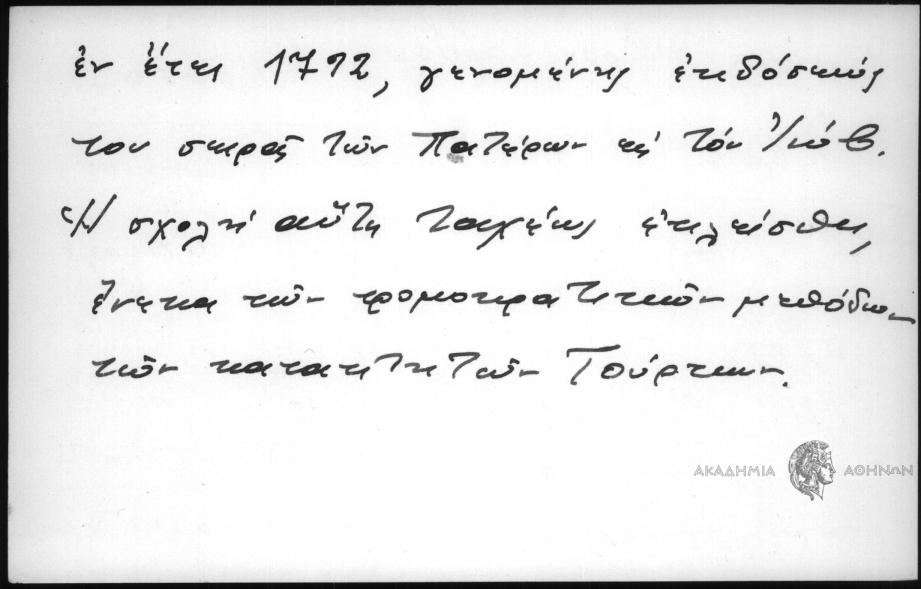 ἐν ἔτει 1792, γενομένης ἐκδόσεώς
του σειρᾶς τῶν Πατέρων εἰς τόν Ἰώβ.
Ἡ σχολή αὕτη ταχέως ἐκλείσθη,
ἕνεκα τῶν τρομοκρατικῶν μεθόδων
τῶν κατακτητῶν Τούρκων.
ΑΚΑΔΗΜΙΑ ΑΘΗΝΩΝ